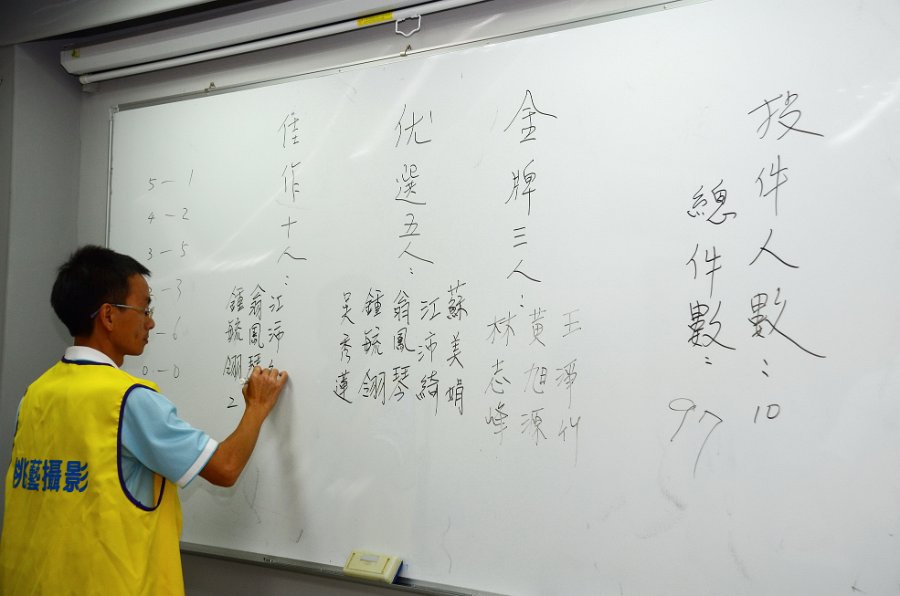 投件人數：10
總件數：97
金牌三人：
王淨竹
黃旭源
林志峰
优選五人：
蘇美娟
江沛綺
翁鳳琴
鍾毓翎
吳秀蓮
佳作十人：
江沛
翁鳳琴
鍾毓翎2
5－1
4－2
3－5
－3
－6
0－0
桃藝攝影